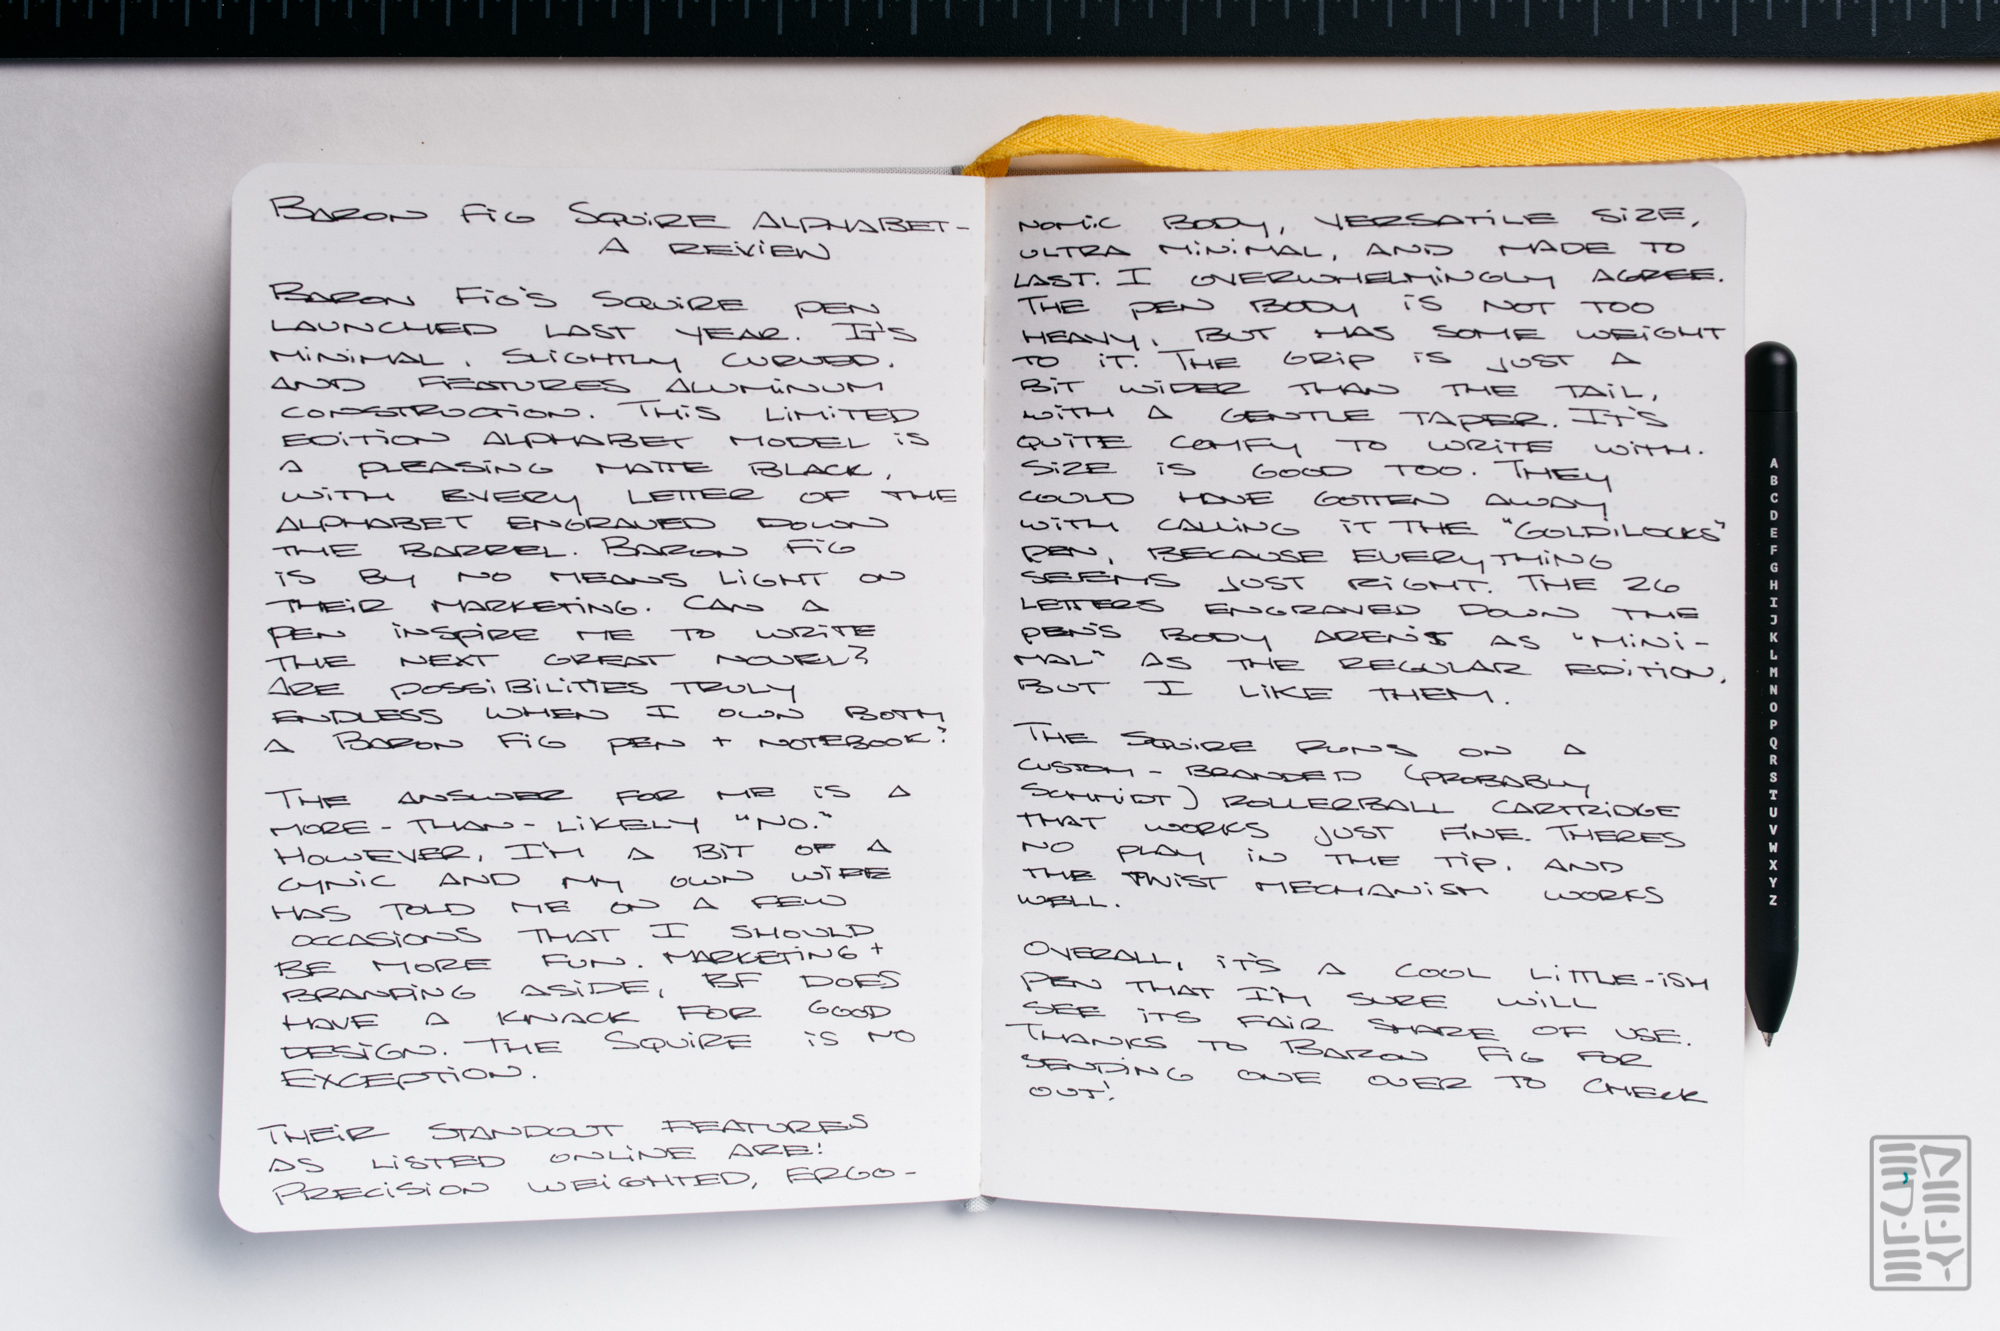 BARON FIG SQUIRE ALPHABET-
A REVIEW
BARON FIG'S SQUIRE PEN
LAUNCHED LAST YEAR. IT'S
MINIMAL, SLIGHTLY CURVED,
AND FEATURES ALUMINUM
CONSTRUCTION. THIS LIMITED
EDITION ALPHABET MODEL IS
A PLEASING MATTE BLACK,
WITH EVERY LETTER OF THE
ALPHABET ENGRAVED DOWN
THE BARREL. BARON FIG
IS BY NO MEANS LIGHT ON
THEIR MARKETING. CAN A
PEN INSPIRE ME TO WRITE
THE NEXT GREAT NOVEL?
ARE POSSIBILITIES TRULY
ENDLESS WHEN I OWN BOTH
A BARON FIG PEN + NOTEBOOK?
THE ANSWER FOR ME IS A
MORE-THAN-LIKELY "NO."
HOWEVER, I'M A BIT OF A
CYNIC AND MY OWN WIFE
HAS TOLD ME ON A FEW
OCCASIONS THAT I SHOULD
BE MORE FUN. MARKETING +
BRANDING ASIDE, BF DOES
HAVE A KNACK FOR GOOD
DESIGN. THE SQUIRE IS NO
EXCEPTION.
THEIR STANDOUT FEATURES
AS LISTED ONLINE ARE:
PRECISION WEIGHTED, ERGO-
NOMIC BODY, VERSATILE SIZE,
ULTRA MINIMAL, AND MADE TO
LAST. I OVERWHELMINGLY AGREE.
THE PEN BODY IS NOT TOO
HEAVY, BUT HAS SOME WEIGHT
TO IT. THE GRIP IS JUST A
BIT WIDER THAN THE TAIL,
WITH A GENTLE TAPER. IT'S
QUITE COMFY TO WRITE WITH.
SIZE IS GOOD TOO. THEY
COULD HAVE GOTTEN AWAY
WITH CALLING IT THE "GOLDILOCKS"
PEN, BECAUSE EVERYTHING
SEEMS JUST RIGHT. THE 26
LETTERS ENGRAVED DOWN THE
PEN'S BODY AREN'T AS "MINI-
MAL" AS THE REGULAR EDITION,
BUT I LIKE THEM.
THE SQUIRE RUNS ON A
CUSTOM-BRANDED (PROBABLY
SCHMIDT) ROLLERBALL CARTRIDGE
THAT WORKS JUST FINE. THERES
NO PLAY IN THE TIP, AND
THE TWIST MECHANISM WORKS
WELL.
OVERALL, IT'S A COOL LITTLE-ISH
PEN THAT I'M SURE WILL
SEE ITS FAIR SHARE OF USE.
THANKS TO BARON FIG FOR
SENDING ONE OVER TO CHECK
OUT!
A B C D E F G H I J K L M N O P Q R S T U V W X Y Z